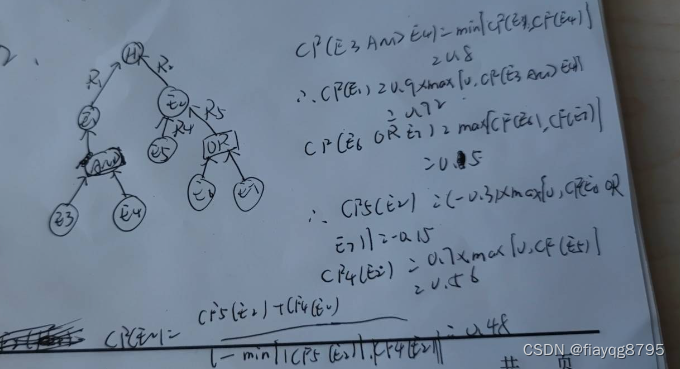 2.
H
R1 R2
E1 E2
R4 R5
AND E5 OR
E3 E4 E6 E7
CF(E3 AND E4)=min{CF(E3),CF(E4)}
=0.8
∴CF(E1)=0.9×max{0,CF(E3 AND E4)}
=0.72
CF(E6 OR E7)=max{CF(E6),CF(E7)}
=0.5
∴ CF5(E2)=(-0.3)×max{0,CF(E6 OR
E7)}=-0.15
CF4(E2)=0.7×max{0,CF(E5)}
=0.56
CF(E2)=
CF5(E2)+CF4(E2)
1-min{|CF5(E2)|,|CF4(E2)|}
=0.48
共 页
CSDN @fiayqg8795